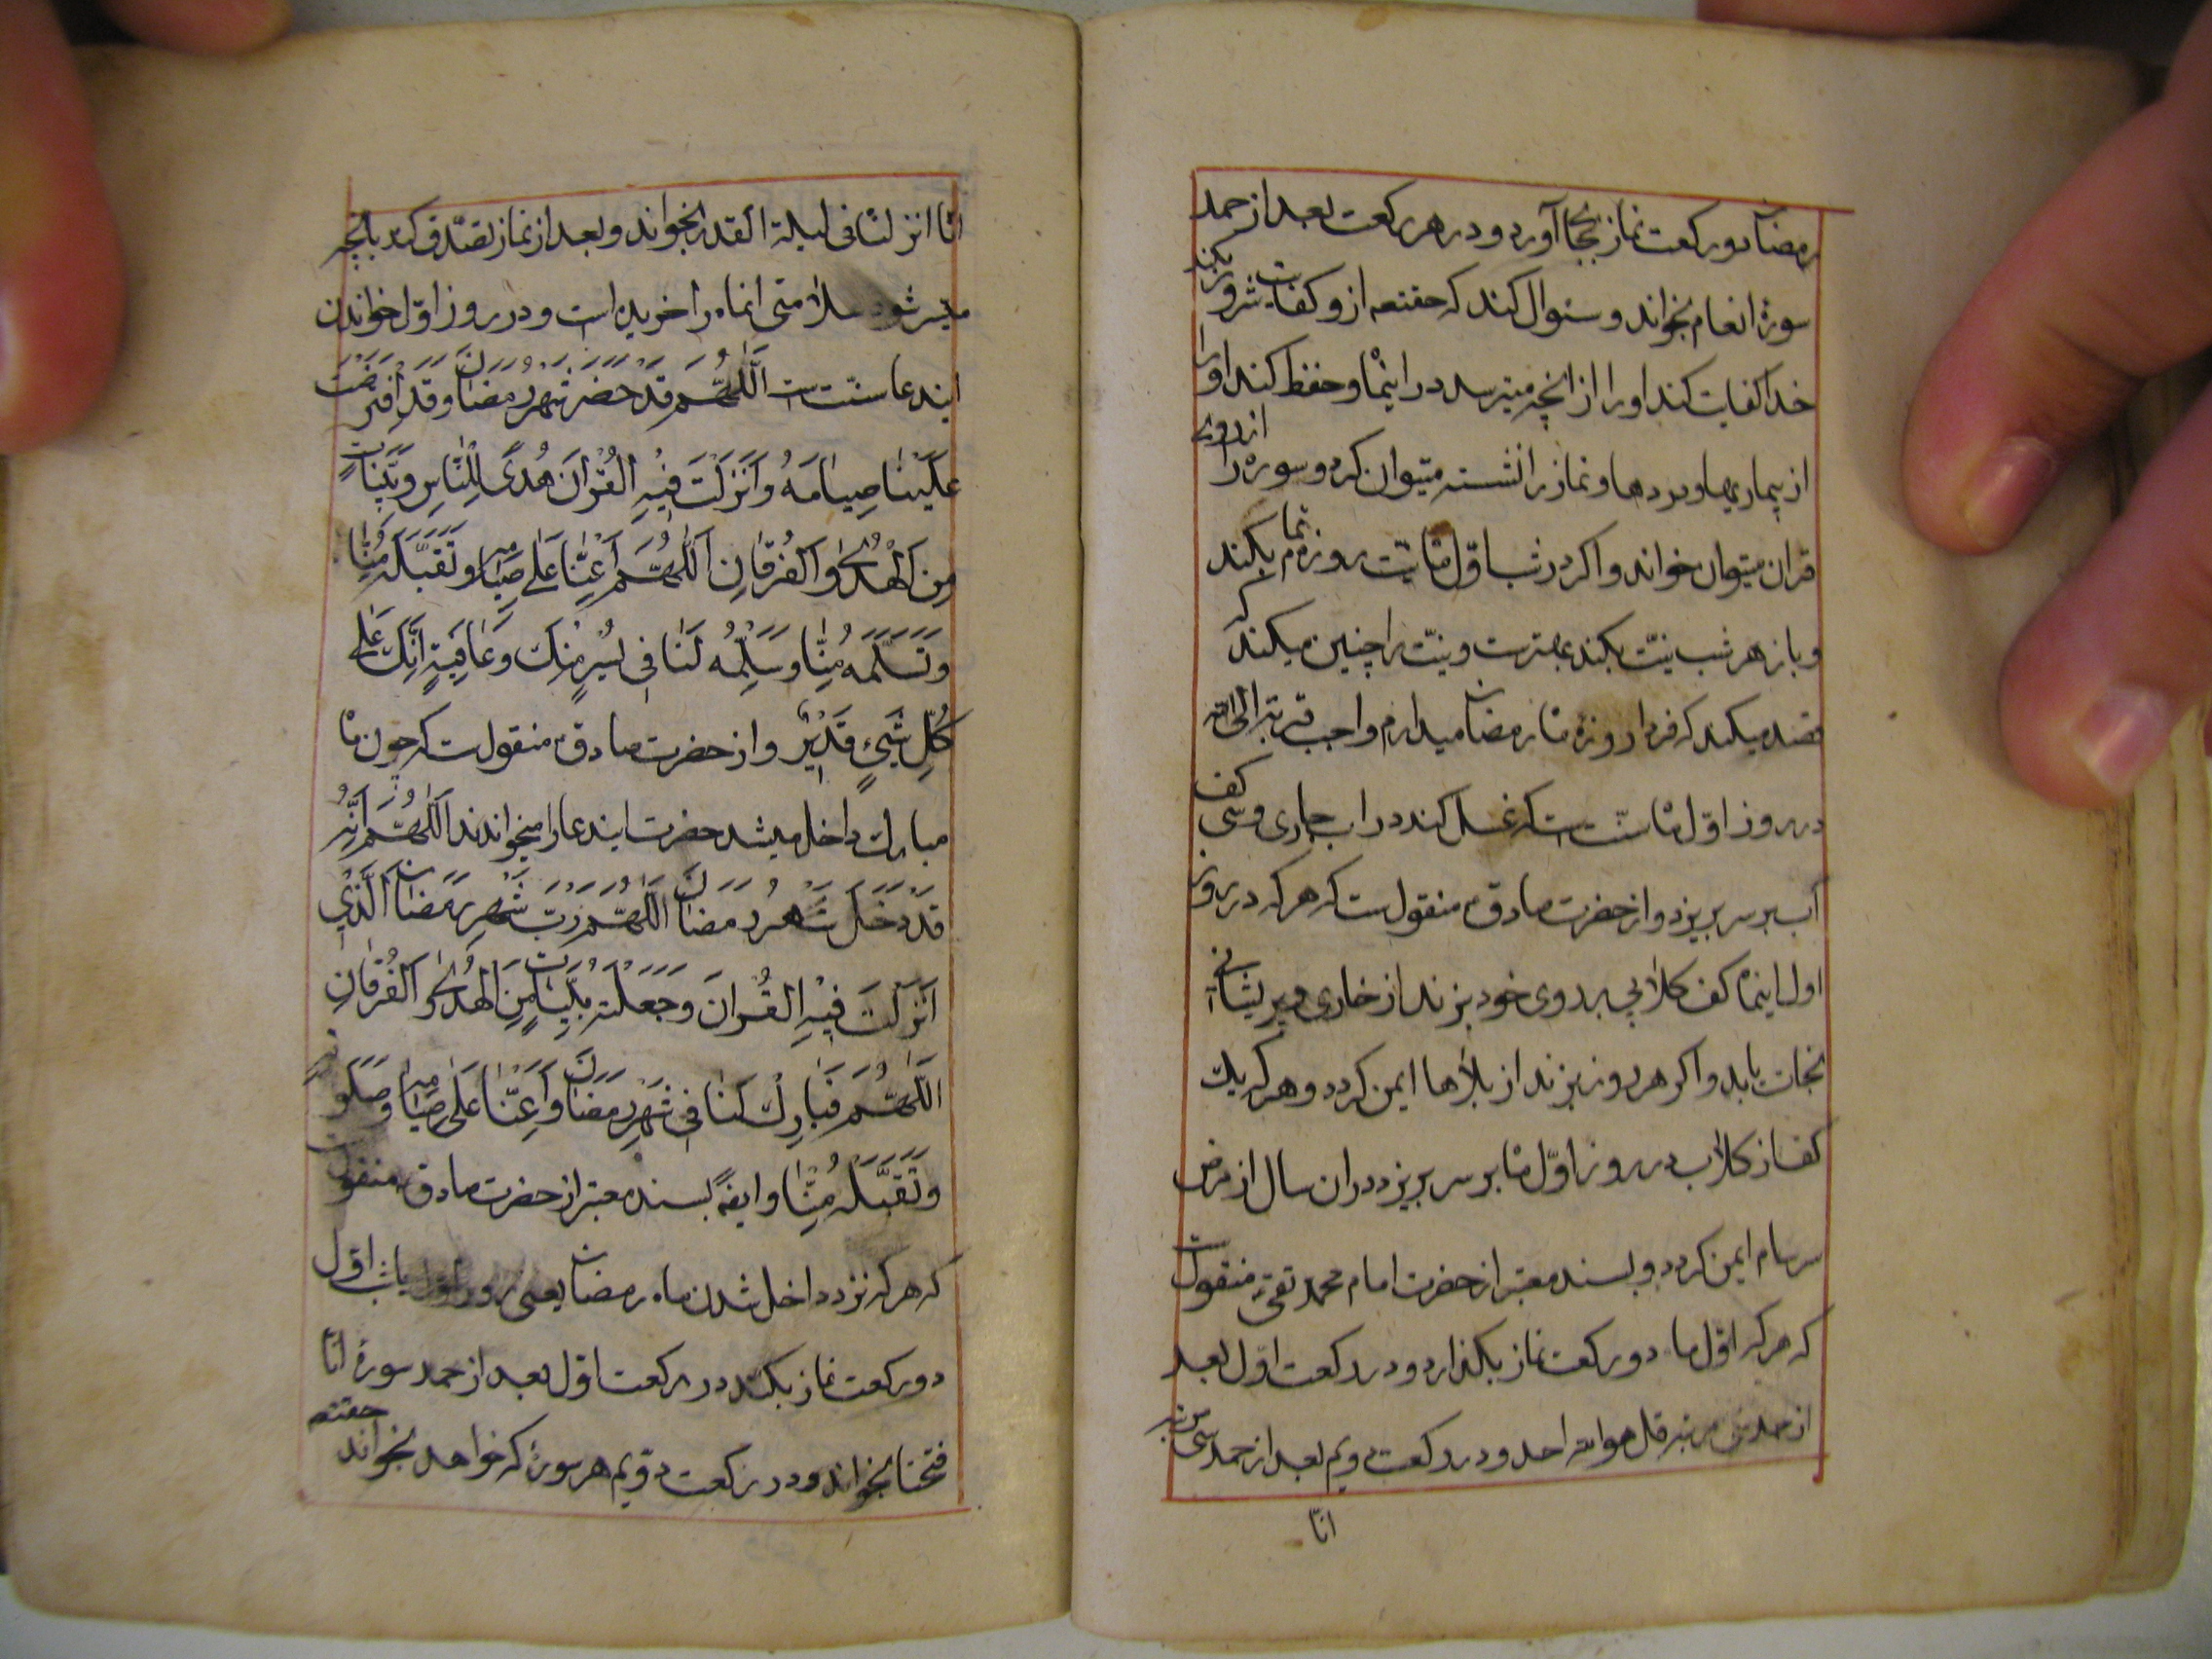 رمضان دو ركعت نماز بجا آورد و در هر ركعت بعد از حمد
سورۀ انعام بخواند و سئوال كند كه حقتعه ازو كفايت شر و روز بكند
خدا كفايت كند او را از انچه ميترسد در اينماه و حفظ كند او را
از بيماريها و دردها و نماز را نشسته ميتوان كرد و سوره را از روى
قران ميتوان خواند و اكر در شب اوّل ماه نيّت روزه تمام بكند
و باز هر شب نيّت بكند بهترست و نيّت را چنين ميكند كه
قصد ميكند كه فردا روزۀ ماه رمضان ميدارم واجب قربة الى الله
در روز اوّل ماه سنّت ست كه غسل كند در اب جارى و سى كف
آب بر سر بريزد و از حضرت صادق ع منقولست كه هر كه در روز
اول اينماه كف كلابى بر روى خود بزند از خارى و پريشانى
نجات يابد و اكر هر روز بزند از بلاها ايمن كردد و هر كه يك
كف از كلاب در روز اوّل ماه بر سر بريزد در ان سال از مرض
سرسام ايمن كردد و بسند معتبر از حضرت امام محمد تقى ع منقولست
كه هر كه اوّل ماه دو ركعت نماز بكذارد و در ركعت اوّل بعد
از حمد سى مرتبه قل هو الله احد و در ركعت دويم بعد از حمد سى مرتبه
انّا
انّا انزلناه فى ليلة القدر بخواند و بعد از نماز تصدّق كند بانچه
ميسر شود سلامتى انماه را خريده است و در روز اوّل خواندن
ايندعا سنّت ست اَللّٰهُمَّ قَدْ حَضَرَ شَهْرُ رَمَضَانَ وَقَدِ افْتَرَضْتَ
عَلَيْنَا صِيَامَهُ وَاَنْزَلْتَ فِيهِ الْقُرْانَ هُدًى لِلنَّاسِ وَبَيِّنَاتٍ
مِنَ الْهُدٰى وَالْفُرْقَانِ اَللّٰهُمَّ اَعِنَّا عَلٰى صِيَامِهِ وَتَقَبَّلْهُ مِنَّا
وَتَسَلَّمْهُ مِنَّا وَسَلِّمْهُ لَنَا فِى يُسْرٍ مِنْكَ وَعَافِيَةٍ اِنَّكَ عَلٰى
كُلِّ شَىْءٍ قَدِيْرٌ و از حضرت صادق ع منقولست كه چون ماه
مبارك داخل ميشد حضرت ايندعا را ميخواندند اَللّٰهُمَّ اِنَّهُ
قَدْ دَخَلَ شَهْرُ رَمَضَانَ اَللّٰهُمَّ رَبَّ شَهْرِ رَمَضَانَ الَّذِى
اَنْزَلْتَ فِيْهِ الْقُرْانَ وَجَعَلْتَهُ بَيِّنَاتٍ مِنَ الْهُدٰى وَالْفُرْقَانِ
اَللّٰهُمَّ فَبَارِكْ لَنَا فِى شَهْرِ رَمَضَانَ وَاَعِنَّا عَلٰى صِيَامِهِ وَصَلَوٰتِهِ
وَتَقَبَّلْهُ مِنَّا و ايضًا بسند معتبر از حضرت صادق ع منقولست
كه هر كه نزد داخل شدن ماه رمضان يعنى روز اول يا شب اوّل
دو ركعت نماز بكند در ركعت اوّل بعد از حمد سورۀ انّا
فتحنا بخواند و در ركعت دويم هر سورۀ كه خواهد بخواند حقتعه